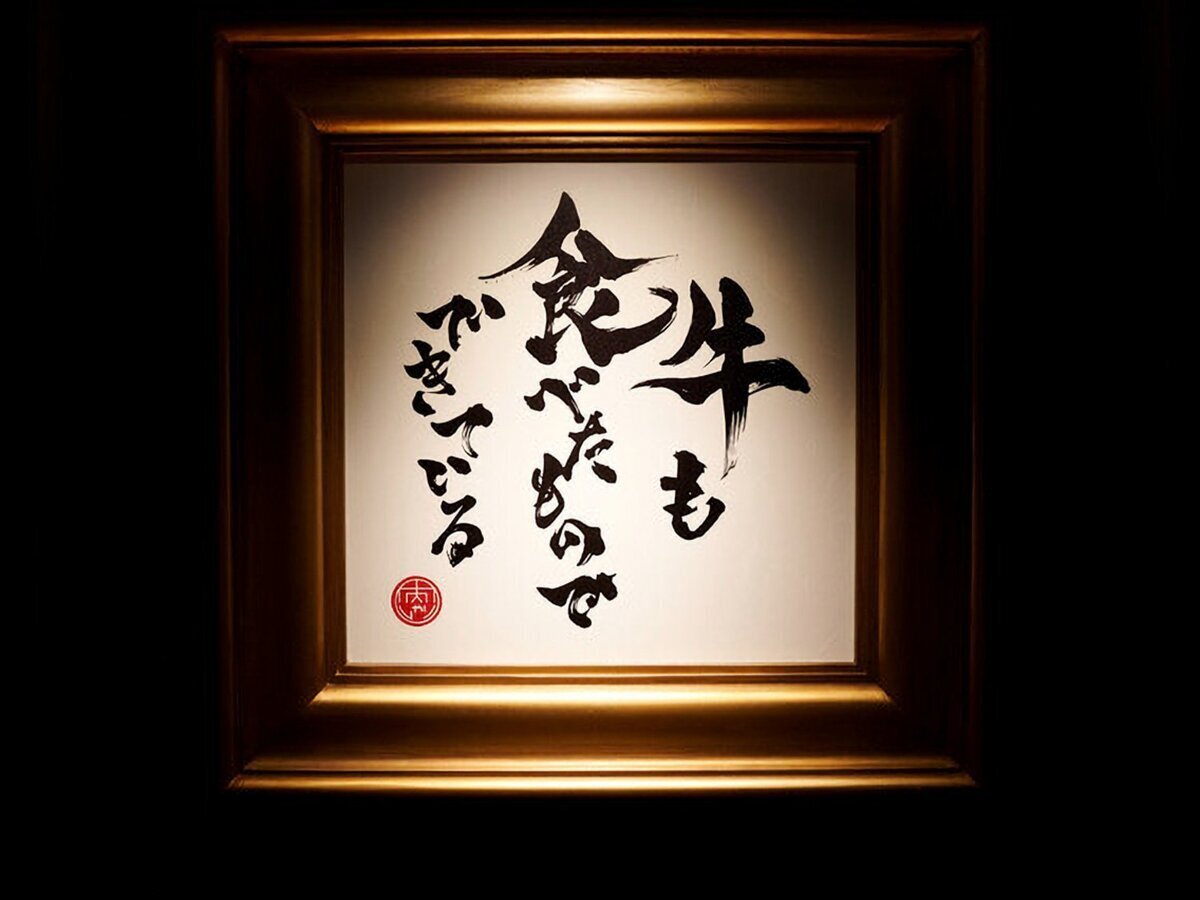 牛も
食べたもので
できている